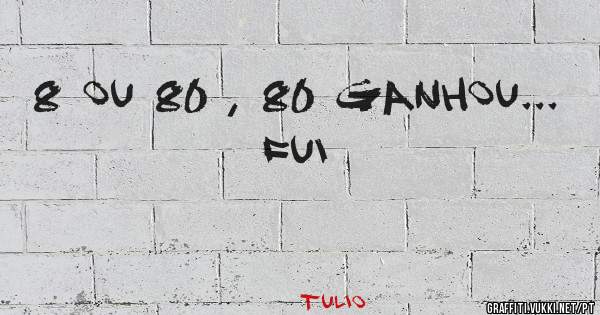 8 OU 80 , 80 GANHOU...
FUI
TULIO
GRAFFITI.VUKKI.NET/PT